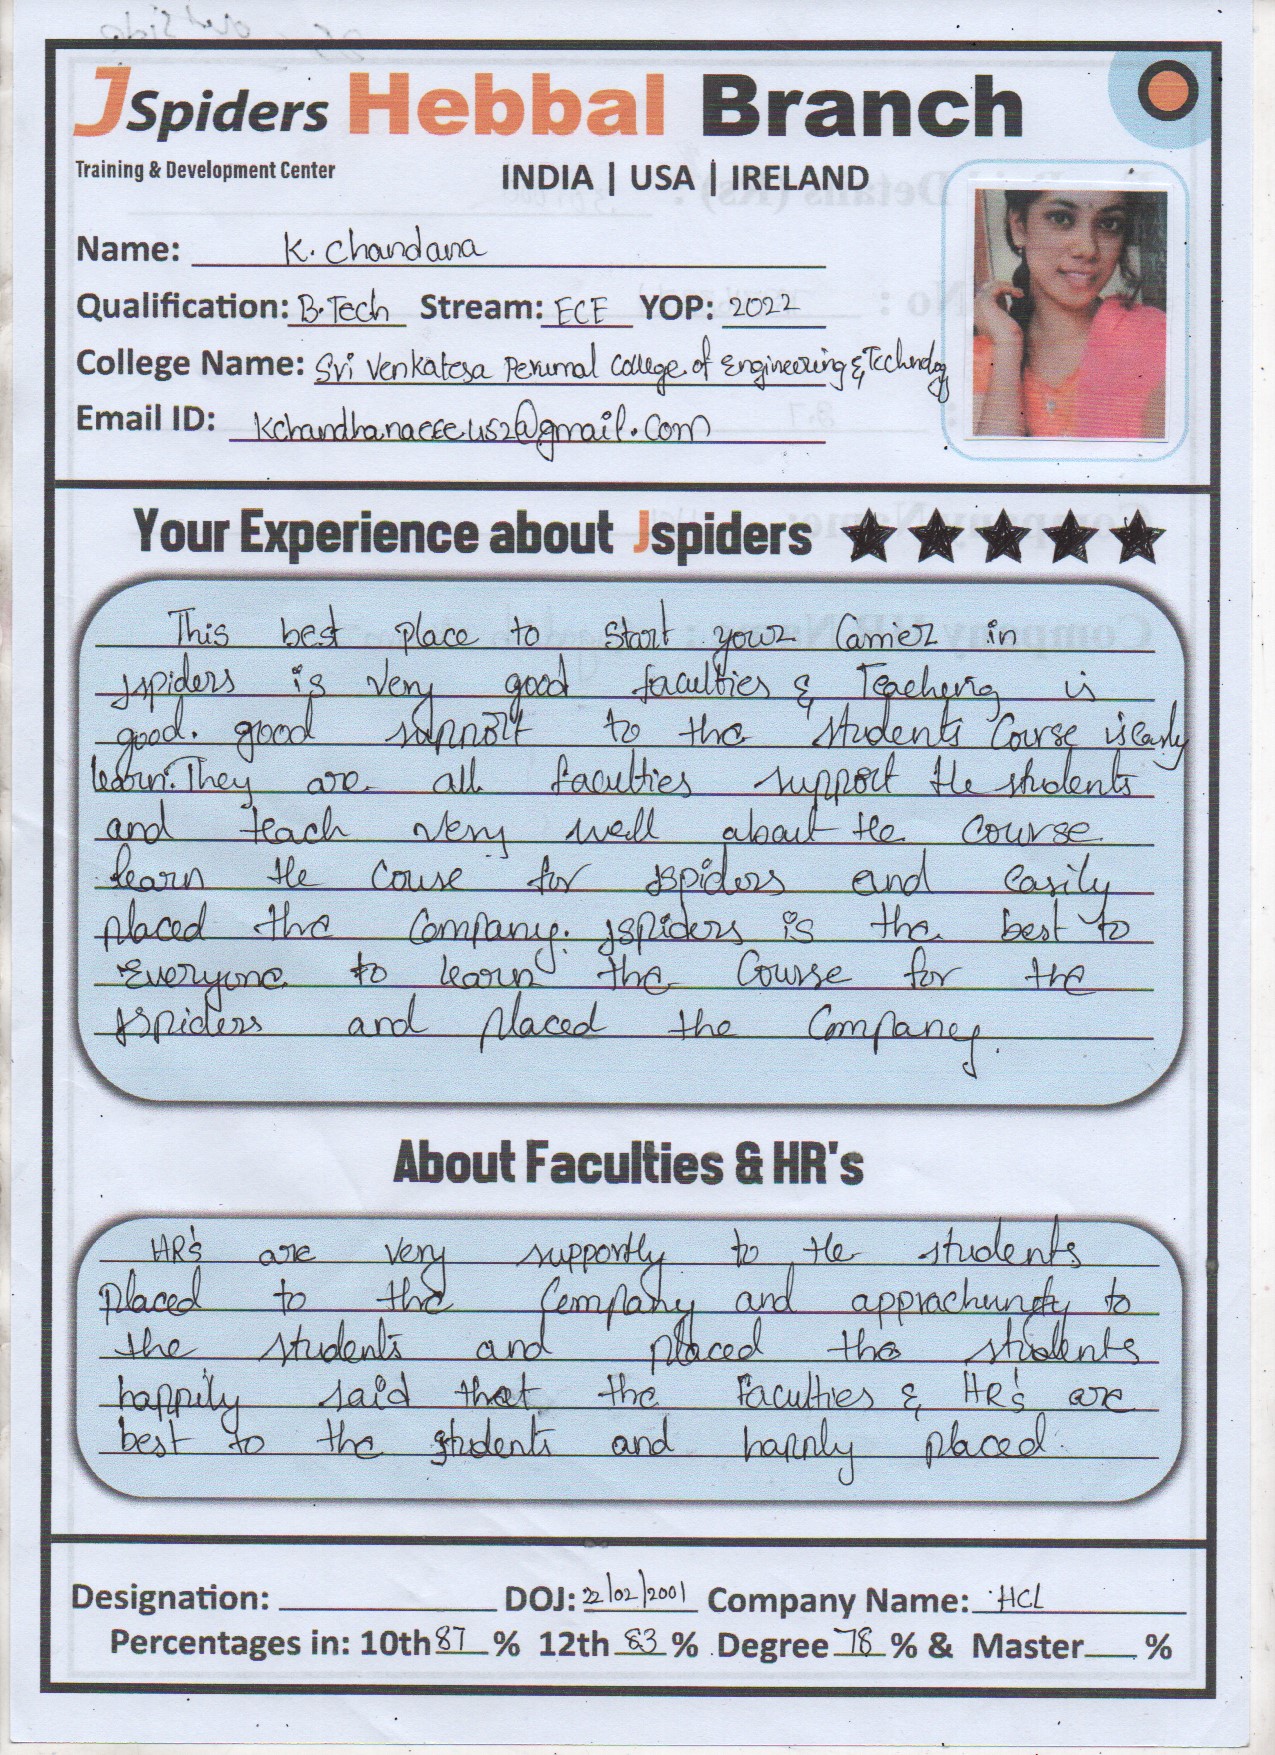 JSpiders Hebbal Branch
Training & Development Center
INDIA | USA | IRELAND
Name: K. Chandana
Qualification: B.Tech Stream: ECE YOP: 2022
College Name: Sri Venkatesa Perumal College of Engineering & Technology
Email ID: @gmail.com
Your Experience about Jspiders ★ ★ ★ ★ ★
This best place to start your Carrier in
Jspiders is very good faculties & Teaching is
good. good support to the students Course is Easly
learn. They are all faculties support the students
and teach very well about the course
learn the couse for Jspiders and easily
placed the Company. Jspiders is the best to
Everyone to learn the Course for the
Jspiders and placed the Company.
About Faculties & HR's
HR's are very supportly to the students
placed to the Company and to
the students and placed the students
happily said that the Faculties & HR's are
best to the students and happly placed.
Designation: DOJ: 22/02/2001 Company Name: HCL
Percentages in: 10th 87 % 12th 83 % Degree 78 % & Master %